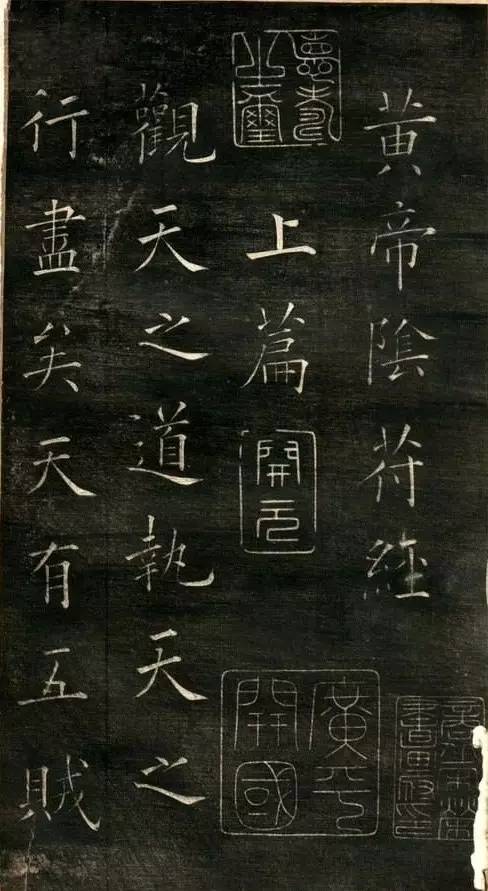 黃帝陰符經
上篇
觀天之道執天之
行盡矣天有五賊
開元
廣平開國